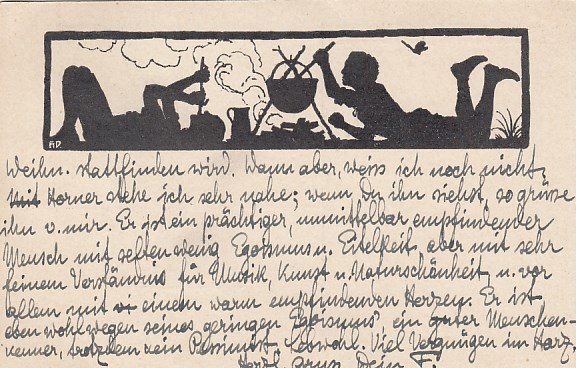 AD.
Weihn. stattfinden wird. Wann aber, weiss ich noch nicht,
Mit Horner stehe ich sehr nahe; wenn Du ihn siehst, so grüsse
ihn v. mir. Er ist ein prächtiger, unmittelbar empfindender
Mensch mit selten wenig Egoismus u. Eitelkeit, aber mit sehr
feinem Verständnis für Musik, Kunst u. Naturschönheit u. vor
allem mit einem warm empfindenden Herzen. Er ist
eben wohl wegen seines geringen Egoismus' ein guter Menschen-
kenner, trotzdem kein Pessimist. Lebwohl. Viel Vergnügen im Harz.
Herzl. Gruss Dein F.